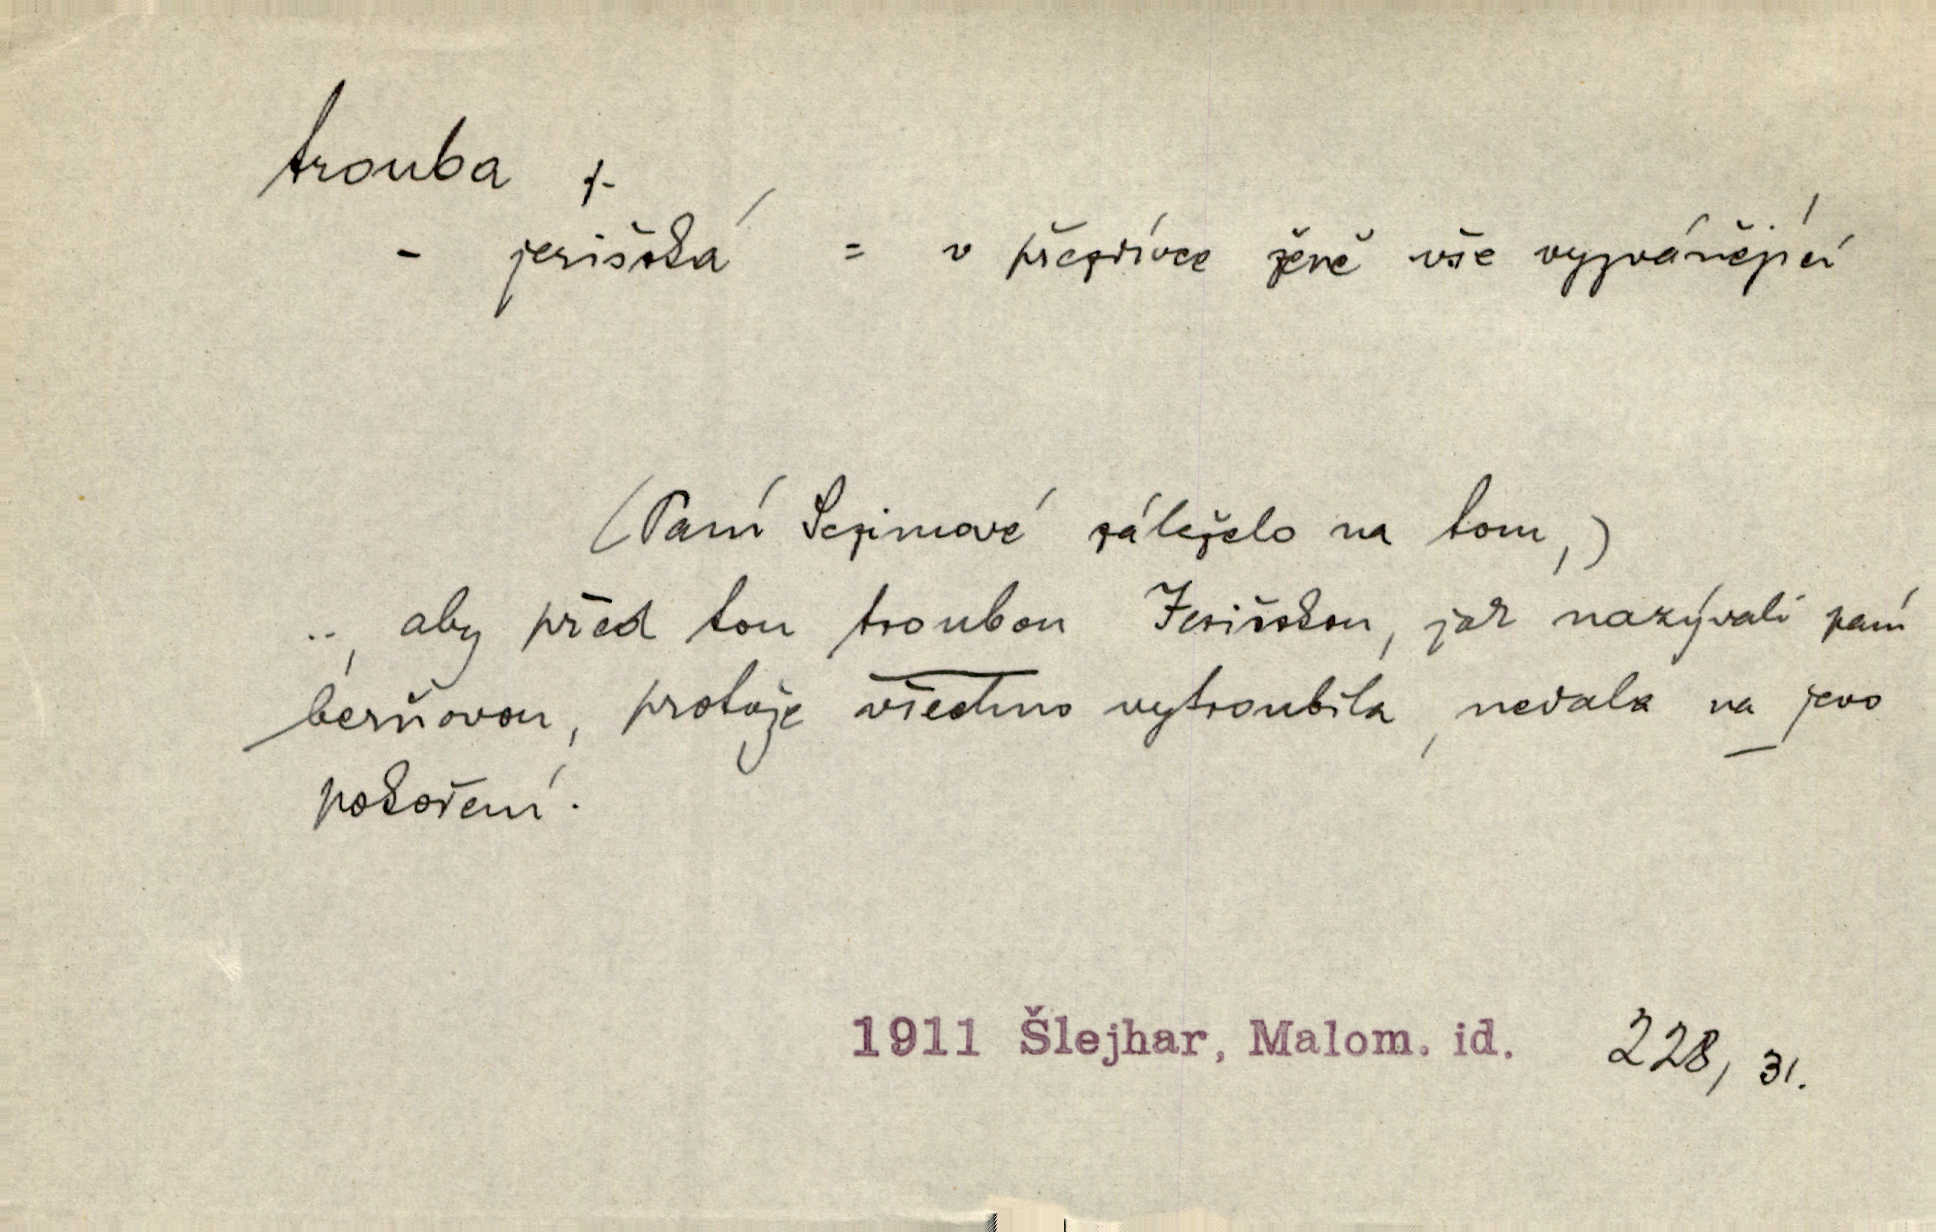 trouba f.
- jerišská = v přezdívce ženě vše vyzvánějící
(Paní Sezimové záleželo na tom,)
.., aby před tou troubou Jerišskou, jak nazývali paní
berňovou, protože všechno vytroubila, nedala na jevo
pokoření.
1911 Šlejhar, Malom. id. 228, 31.